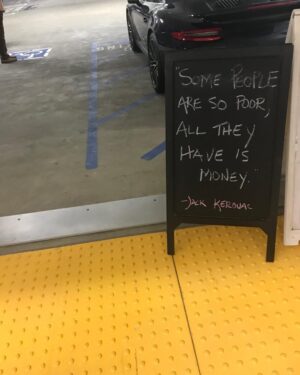 "SOME PEOPLE
ARE SO POOR,
ALL THEY
HAVE IS
MONEY."
-JACK KEROUAC